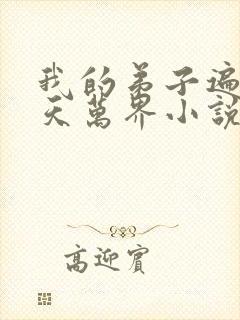 我的弟子遍
天萬界小説
高迎賓